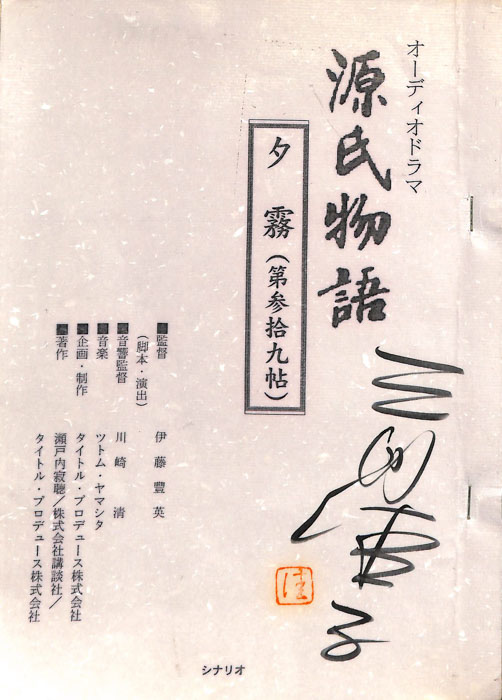 オーディオドラマ
源氏物語
夕霧（第参拾九帖）
■監督　伊藤豐英
（脚本・演出）
■音響監督　川崎　清
■音楽　ツトム・ヤマシタ
■企画・制作　タイトル・プロデュース株式会社
■著作　瀬戸内寂聴／株式会社講談社／
タイトル・プロデュース株式会社
シナリオ